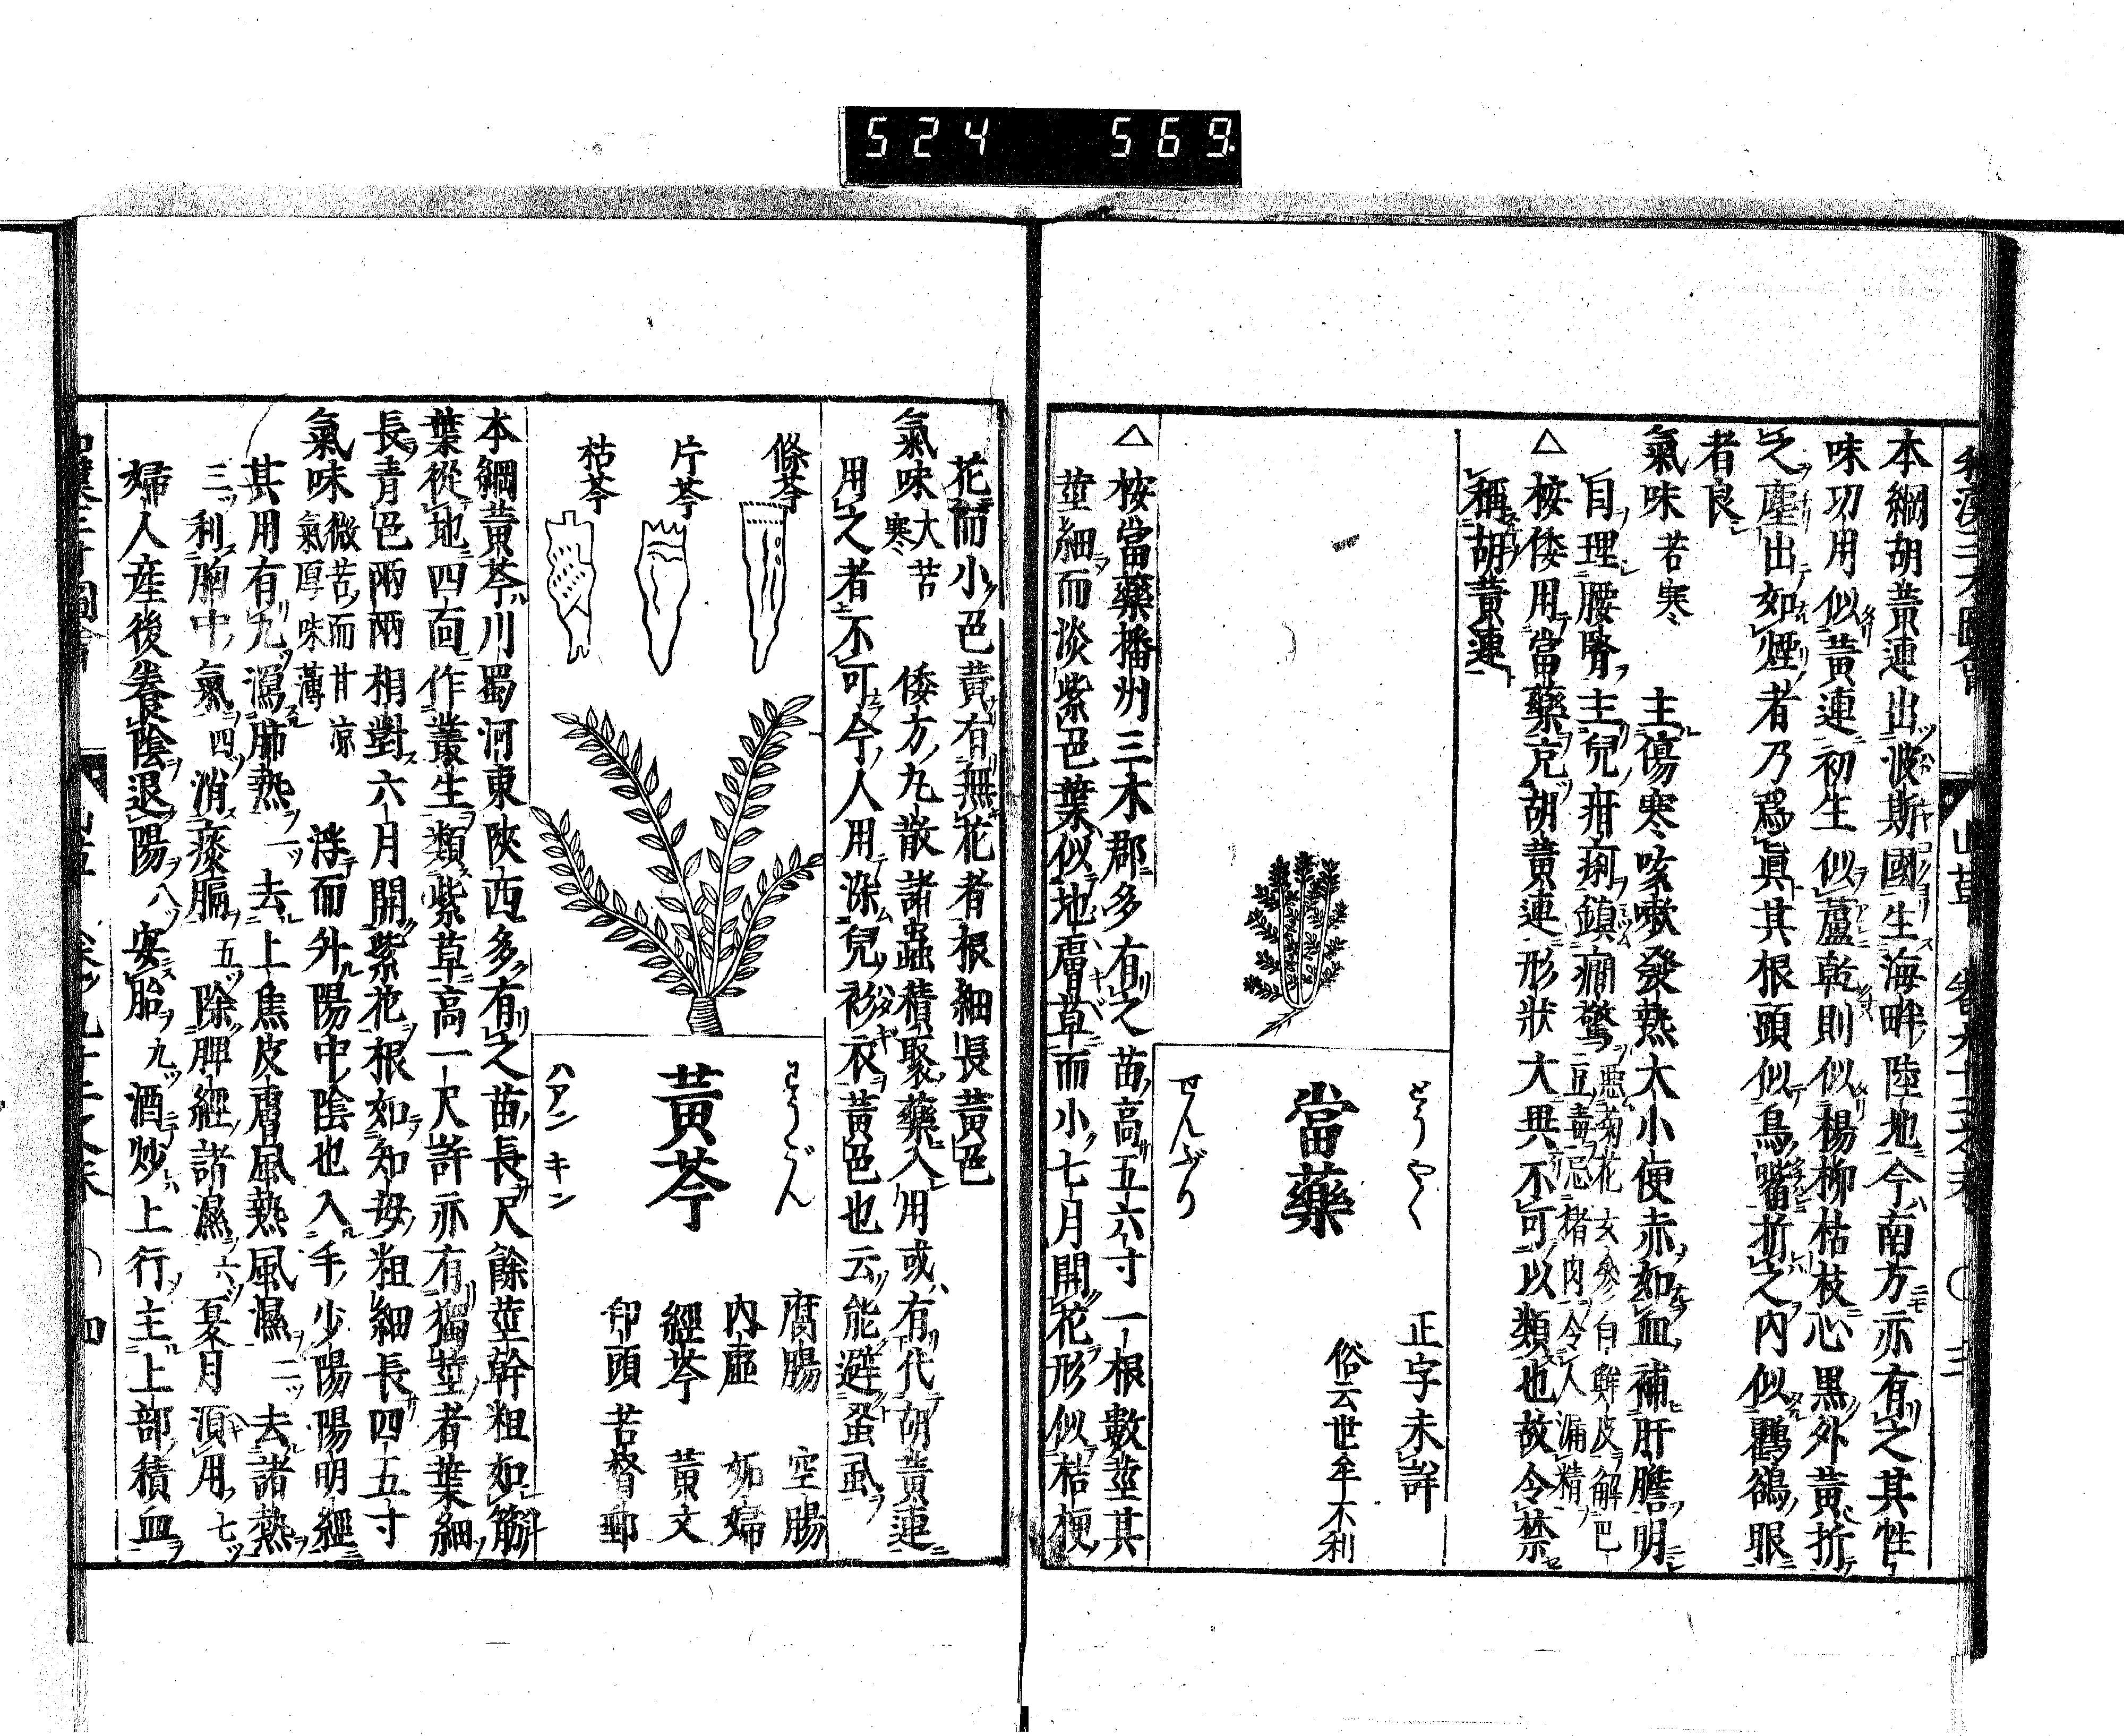 524 569
和漢三才圖會 山草 卷九十二之末 〇 三
本綱胡黃連出波斯國生海畔陸地今南方亦有之其性
味功用似黃連初生似蘆乾則似楊柳枯枝心黒外黃折
之塵出如煙者乃爲眞其根頭似鳥嘴折之內似鸜鵒眼
者良
氣味 苦寒 主傷寒咳嗽發熱大小便赤如血補肝膽明
目理腰腎主兒疳痢鎮癎驚 惡菊花玄參白鮮皮解巴
豆毒忌猪肉令人漏精
△按倭用當藥充胡黃連形狀大異不可以類也故令禁
稱胡黃連
とうやく
當藥
せんぶり
正字未詳
俗云世牟不利
△按當藥播州三木郡多有之苗高五六寸一根數莖其
莖細而淡紫色葉似地膚草而小七月開花形似桔梗
花而小色黃有無花者根細長黃色
氣味 大苦寒 倭方丸散諸蟲積聚藥入用或有代胡黃連
用之者不可今人用染兒衫衣黃色也云能避蚤虱
條芩
片芩
枯芩
わうごん
黃芩
ハアン キン
腐腸 空腸
內虛 妬婦
經芩 黃文
印頭 苦督郵
本綱黃芩川蜀河東陝西多有之苗長尺餘莖幹粗如筋
葉從地四面作叢生類紫草高一尺許亦有獨莖者葉細
長青色兩兩相對六月開紫花根如知母粗細長四五寸
氣味 微苦而甘凉
氣厚味薄 浮而外陽中陰也入手少陽陽明經
其用有九瀉肺熱一ツ去上焦皮膚風熱風濕二ツ去諸熱
三ツ利胸中氣四ツ消痰膈五ツ除脾經諸濕六ツ夏月須用七ツ
婦人產後養陰退陽八ツ安胎九ツ酒炒上行主上部積血